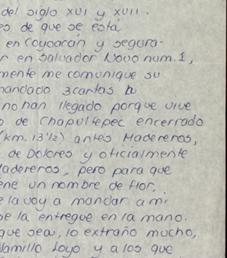 del siglo XVI y XVII.
es de que se está
en Coyoacán y segura-
r en Salvador Novo num. 1,
mente me comunique su
mandado 3 cartas
no han llegado porque vive
o de Chapultepec encerrado
(km. 13½) antes Madereros,
de Dolores y oficialmente
adereros, pero para que
ene un nombre de flor.
e la voy a mandar a mi
se la entregue en la mano.
que sea, lo extraño mucho,
Jamillo Loyo y a los que